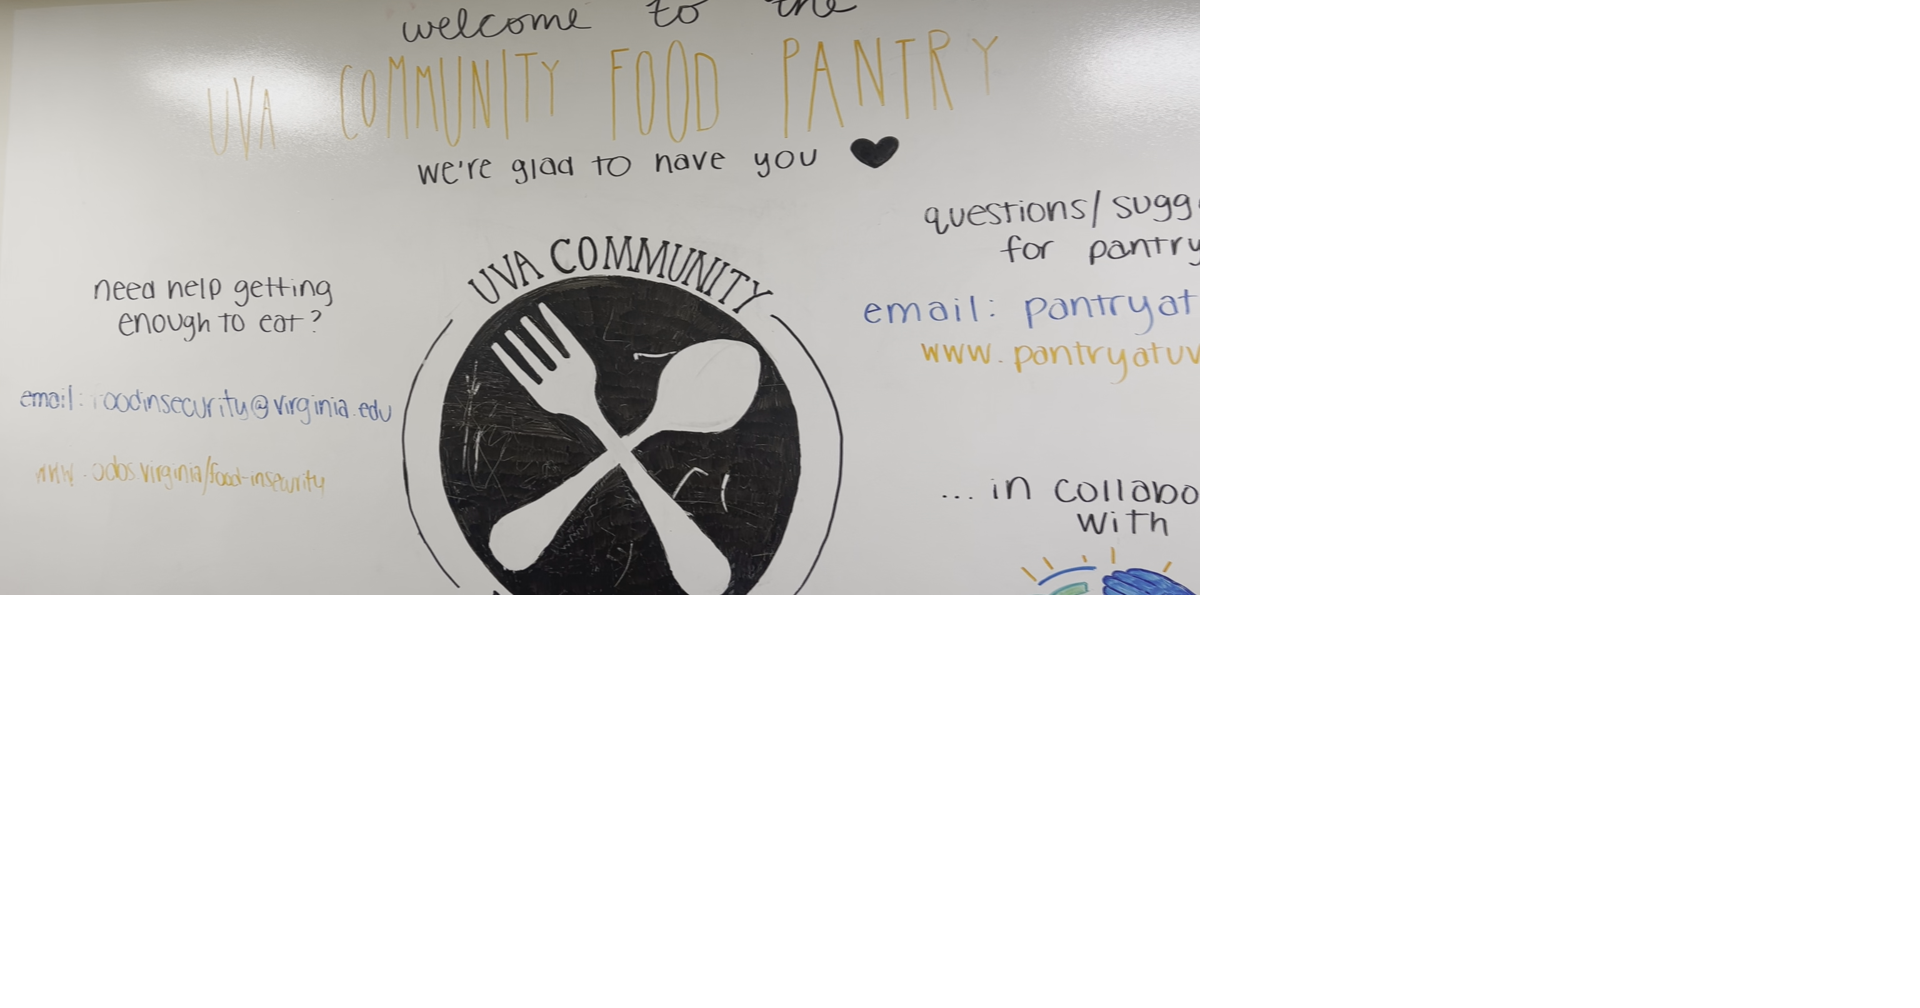 welcome to the
UVA COMMUNITY FOOD PANTRY
we're glad to have you
need help getting
enough to eat?
email: foodinsecurity@virginia.edu
www.odos.virginia/food-insecurity
UVA COMMUNITY
questions/sugg
for pantry
email: pantryat
www.pantryatuv
... in collabo
with